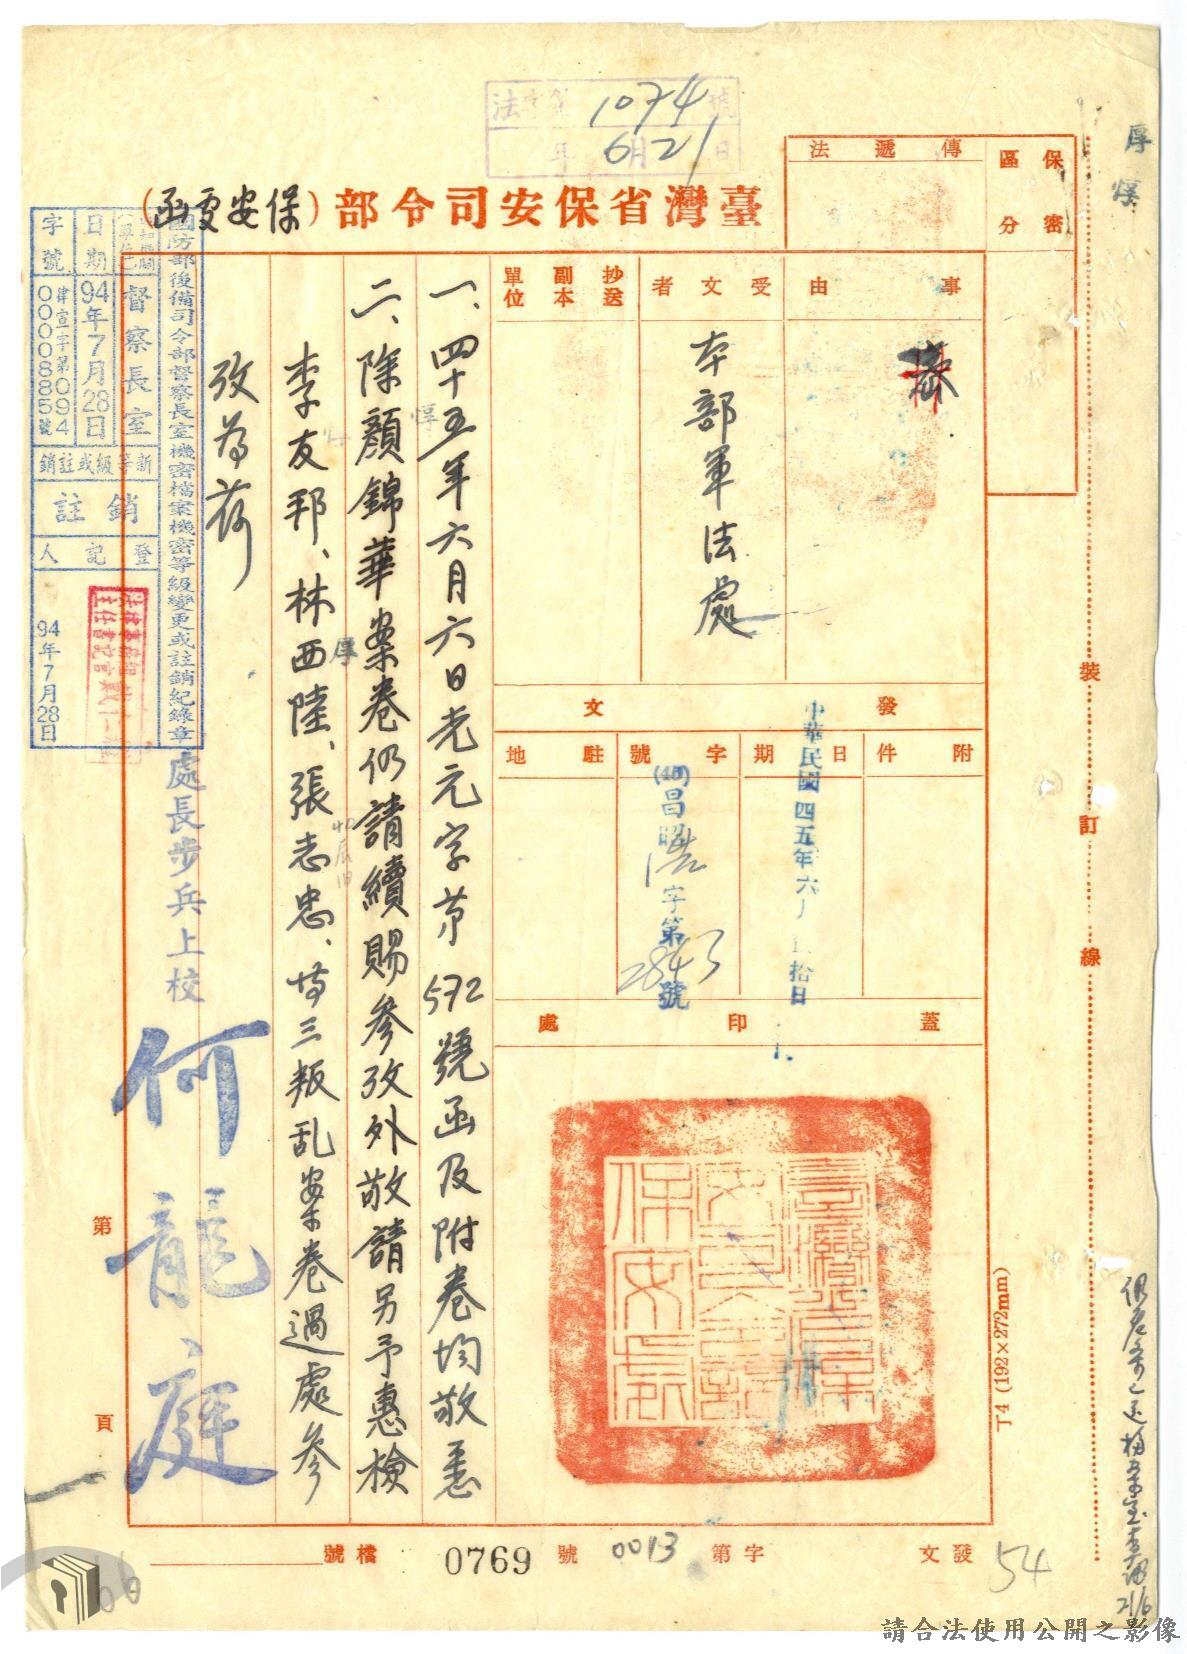 法字第1074號
年6月21日
臺灣省保安司令部(保安處函)
保密
區分
傳遞法
事由
受文者
本部軍法處
抄送
副本
單位
發文
附件
日期
中華民國四五年六月 拾日
字號
(45)昌
字第2843號
駐地
蓋印處
一、四十五年六月六日光元字第572號函及附卷均敬悉
二、除顏錦華案卷仍請續賜參攷外敬請另予惠檢
李友邦、林西陸、張志忠、等三叛乱案卷過處參
攷為荷
處長步兵上校何龍庭
國防部後備司令部督察長室機密檔案機密等級變更或註銷紀錄章
督察長室
日期
94年7月28日
字號
律宣字第0940000885號
新等級或註銷
註銷
登記人
94年7月28日
裝訂線
厚
第頁
丁4 (192×272mm)
發文字第0013號
0769
檔號
54
21/6
請合法使用公開之影像